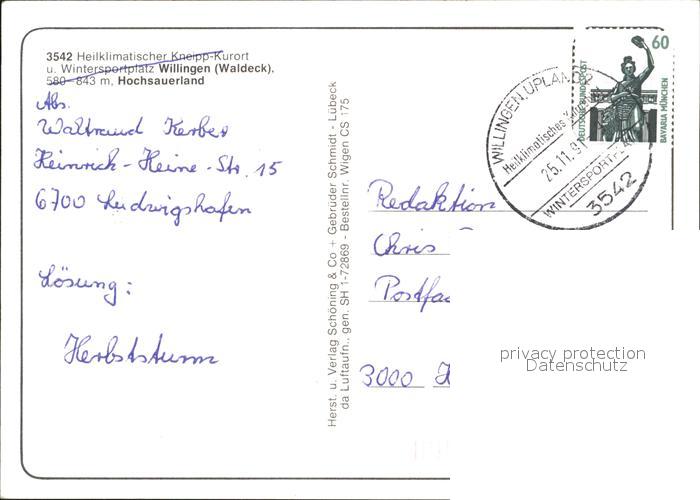 3542 Heilklimatischer Kneipp-Kurort
u. Wintersportplatz Willingen (Waldeck),
580–843 m, Hochsauerland
Abs.
Waltraud Kerber
Heinrich-Heine-Str. 15
6700 Ludwigshafen
Lösung:
Herbststurm
Herst. u. Verlag Schöning & Co + Gebrüder Schmidt - Lübeck
da Luftaufn., gen. SH 1-72869 - Bestellnr. Wigen CS 175
WILLINGEN, UPLAND
Heilklimatisches
25.11.91
WINTERSPORT
3542
60
DEUTSCHE BUNDESPOST
BAVARIA MÜNCHEN
Redaktion
Chris
Postfac
3000 H
privacy protection
Datenschutz